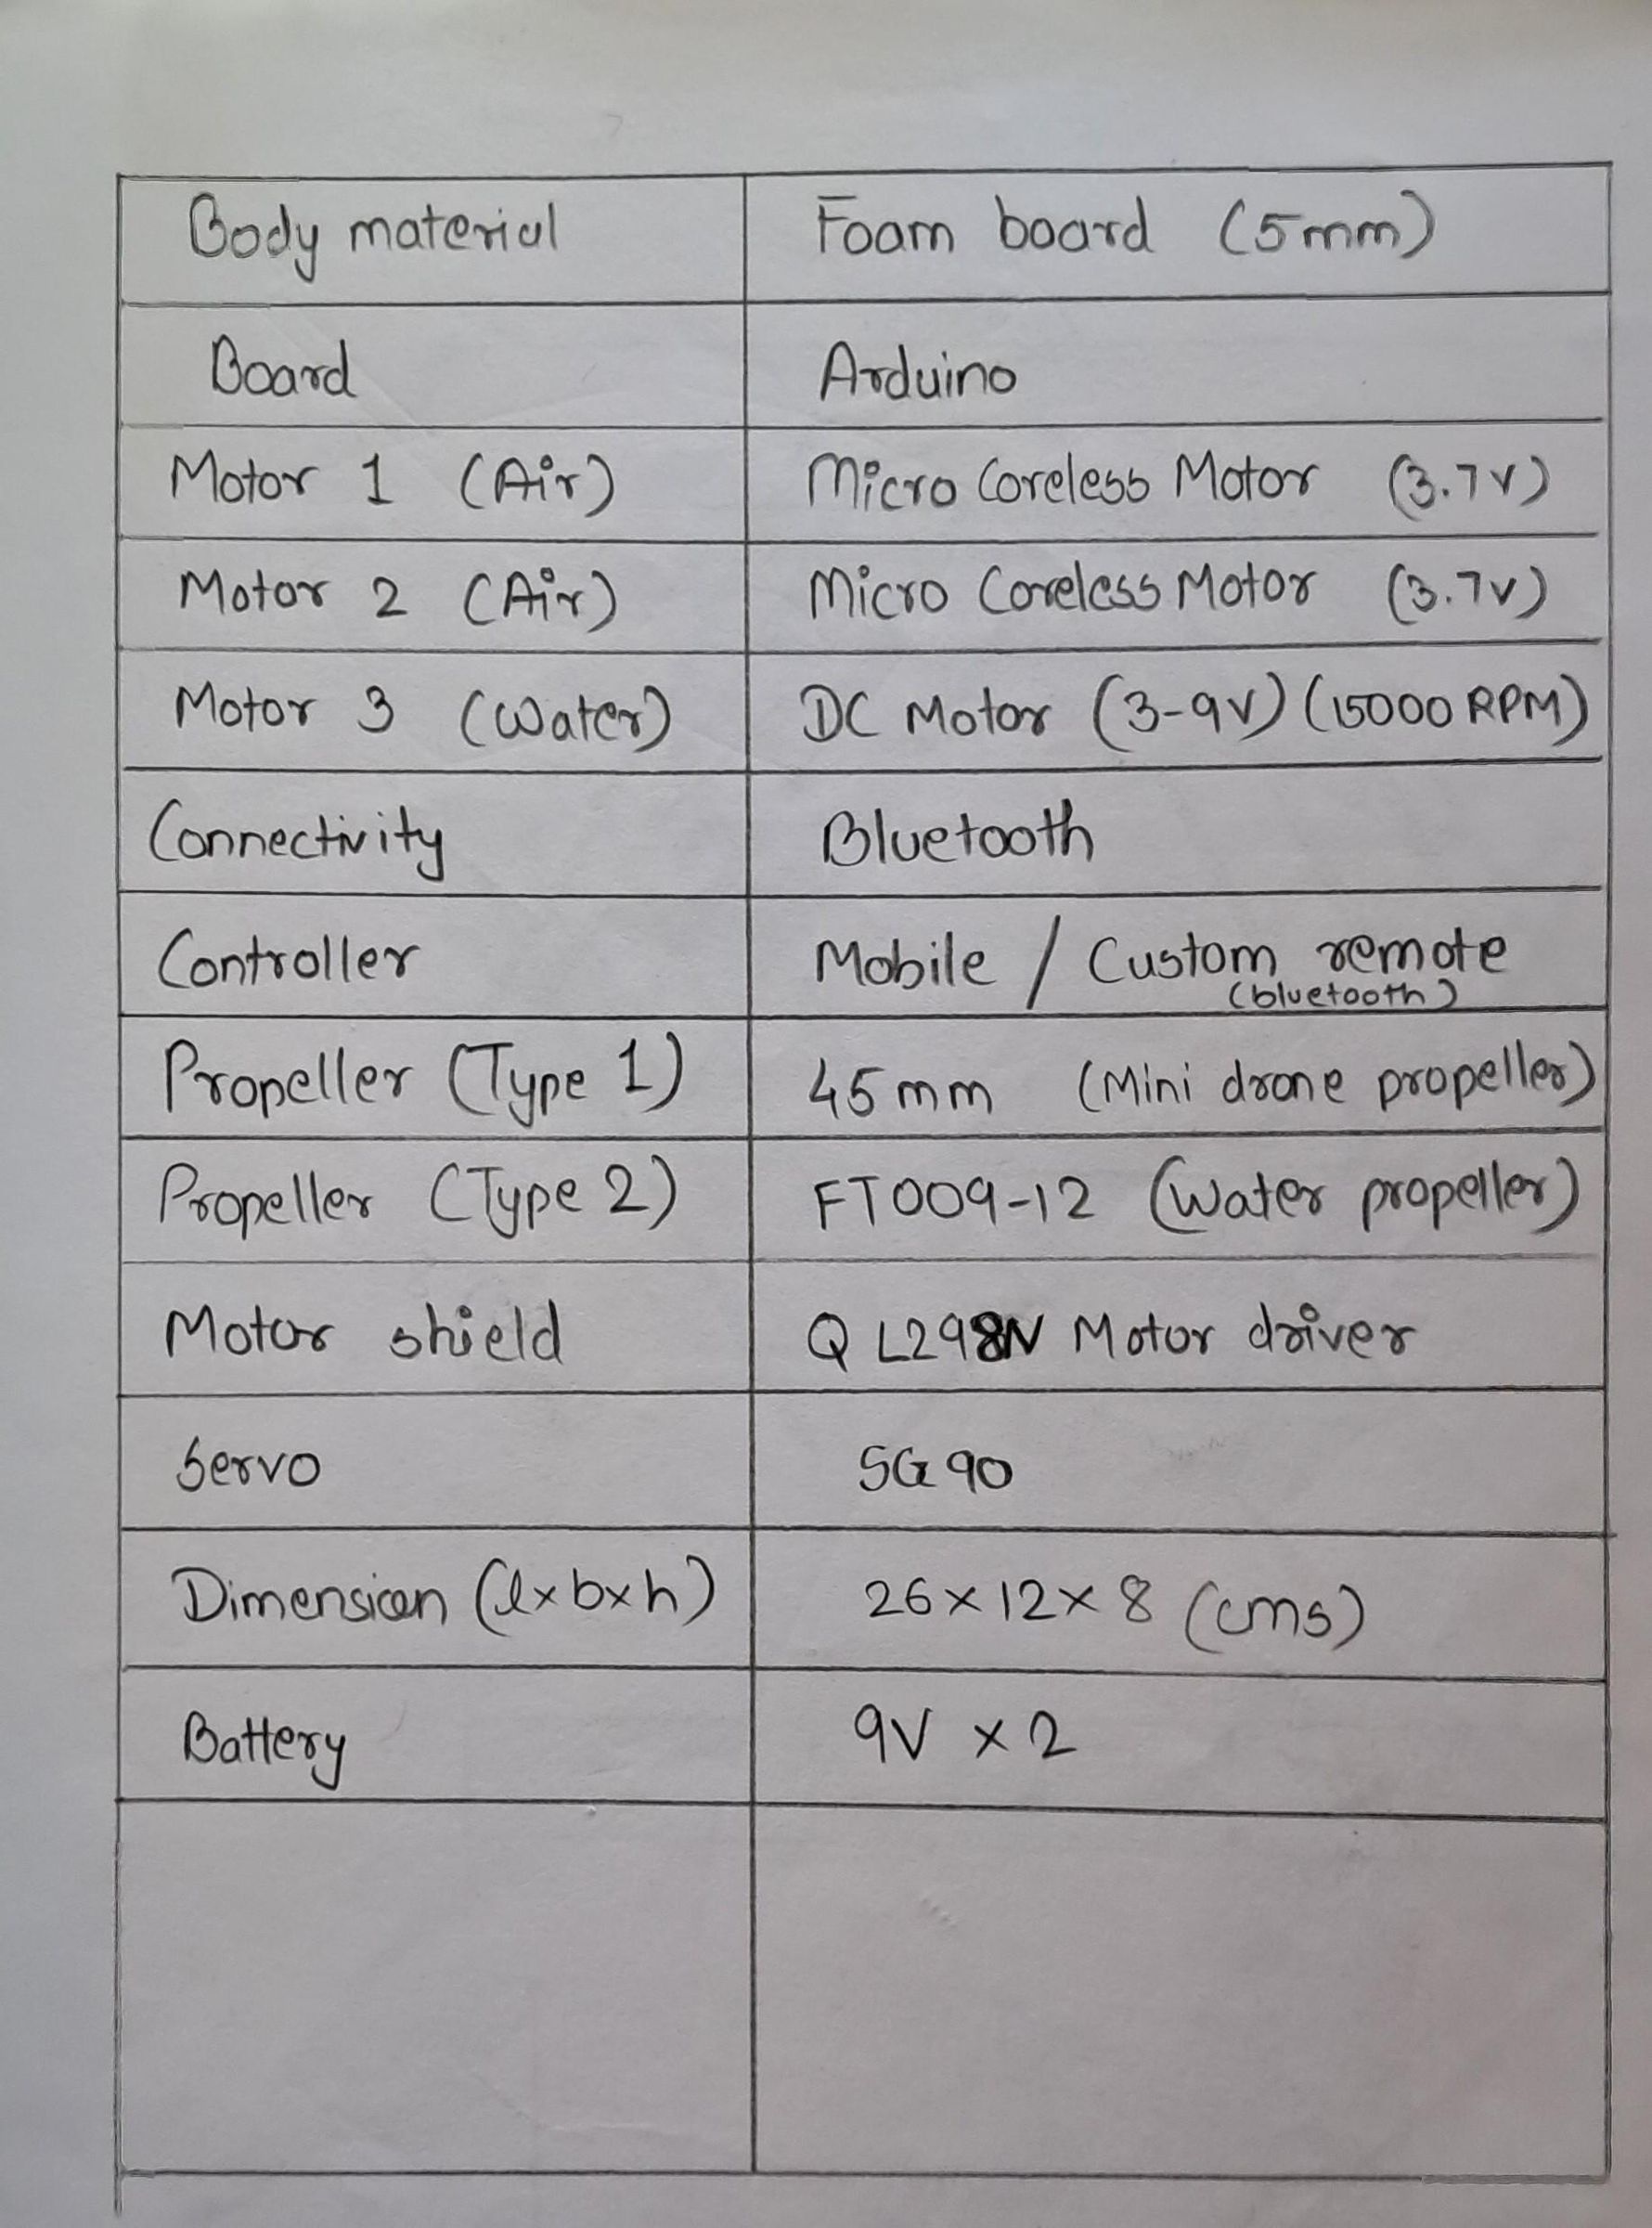 Body material Foam board (5mm)
Board Arduino
Motor 1 (Air) Micro Coreless Motor (3.7V)
Motor 2 (Air) Micro Coreless Motor (3.7V)
Motor 3 (Water) DC Motor (3-9V) (15000 RPM)
Connectivity Bluetooth
Controller Mobile / Custom remote
(bluetooth)
Propeller (Type 1) 45mm (Mini drone propeller)
Propeller (Type 2) FT009-12 (Water propeller)
Motor shield Q L298N Motor driver
Servo SG90
Dimension (l×b×h) 26×12×8 (cms)
Battery 9V ×2